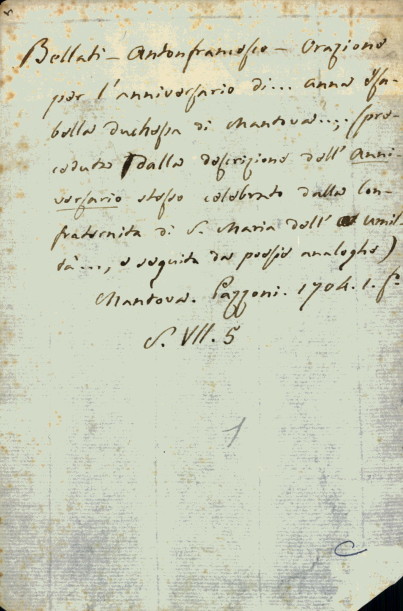 Bellati - Antonfrancesco - Orazione
per l'anniversario di... Anna Isa-
bella duchessa di Mantova...; (pre-
ceduta dalla descrizione dell' Anni-
versario stesso celebrato dalla Con-
fraternita di S. Maria dell' Umil-
tà..., e seguita da poesie analoghe)
Mantova. Pazzoni. 1704. 1. f.o
S. VII. 5
1
C